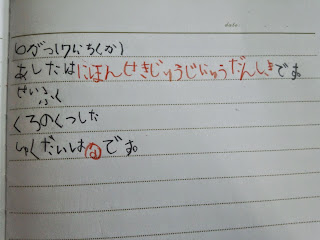 date
10がつ17にち(か)
あしたはにほんせきじゅうじにゅうだんしきです。
せいふく
くろのくつした
しゅくだいはです。